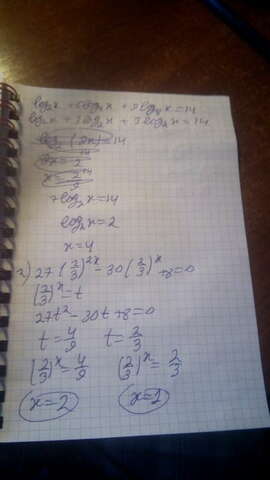 log₂x + 6log₄x + 9log₈x = 14
log₂x + 3log₂x + 3log₂x = 14
log₂(9x) = 14
9x = 2¹⁴
x = 2¹⁴/9
7log₂x = 14
log₂x = 2
x = 4
2) 27(2/3)²ˣ - 30(2/3)ˣ + 8 = 0
(2/3)ˣ = t
27t² - 30t + 8 = 0
t = 4/9 t = 2/3
(2/3)ˣ = 4/9 (2/3)ˣ = 2/3
x = 2 x = 1